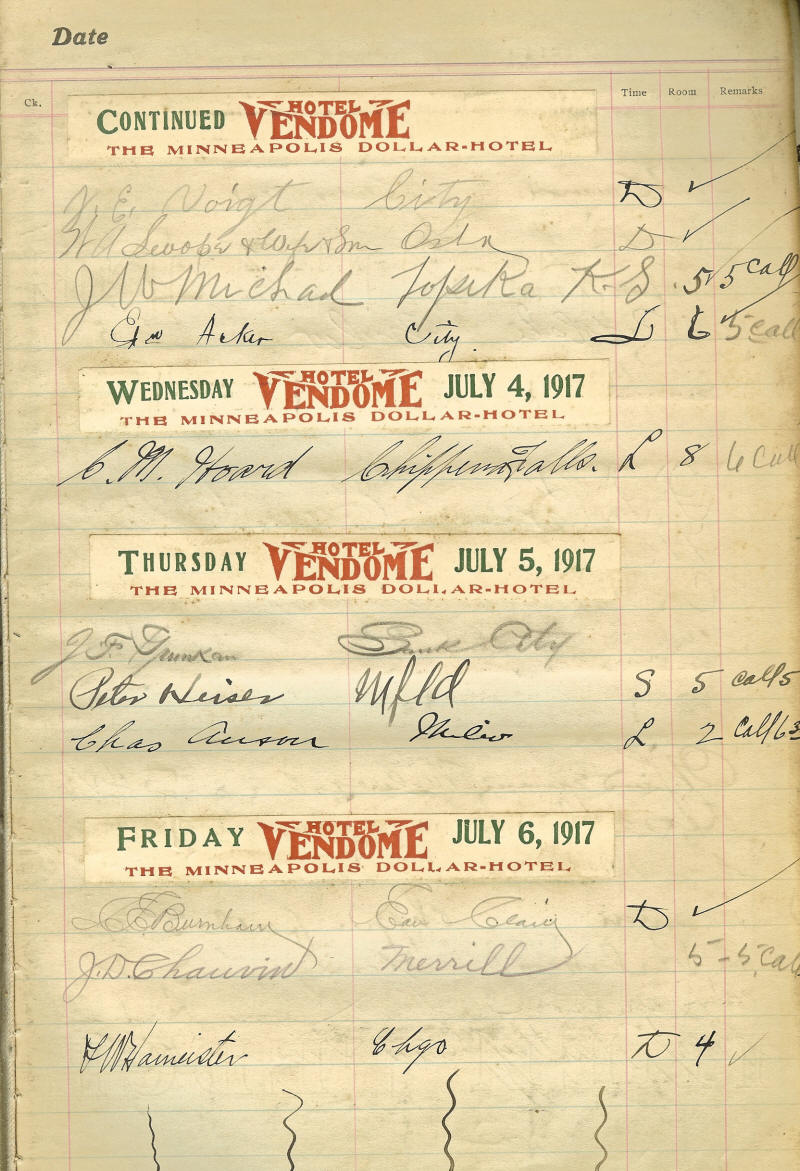 Date
Ck. Time Room Remarks
CONTINUED HOTEL VENDOME
THE MINNEAPOLIS DOLLAR-HOTEL
J. E. Voigt City D ✓
W A & Wife & Son D ✓
J W Michael Topeka K.S 5 5 Call
Acker City L 6 5 Call
WEDNESDAY HOTEL VENDOME JULY 4, 1917
THE MINNEAPOLIS DOLLAR-HOTEL
C. M. Hoard Chippewa Falls. L 8 6 Call
THURSDAY HOTEL VENDOME JULY 5, 1917
THE MINNEAPOLIS DOLLAR-HOTEL
J. F. City
Peter Heiser Mfld S 5 Call 5
Chas Anson Milw L 2 Call 6 30
FRIDAY HOTEL VENDOME JULY 6, 1917
THE MINNEAPOLIS DOLLAR-HOTEL
Burnham Eau Claire D ✓
J. D. Chauvin Merrill 5 - 5 Call
Hameister Chgo D 4 ✓